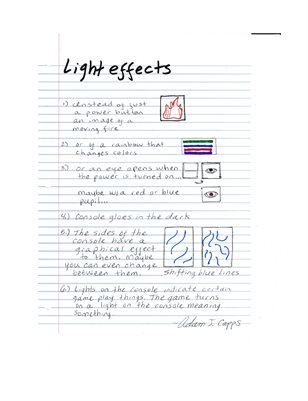 Light effects
1) Instead of just
a power button
an image of a
moving fire
2) or of a rainbow that
changes colors
3) or an eye opens when
the power is turned on...
maybe w/a red or blue
pupil...
4) Console gloes in the dark
5.) The sides of the
console have a
graphical effect
to them. Maybe
you can even change
between them.
Shifting blue lines
6) Lights on the console indicate certain
game play things. The game turns
on a light on the console meaning
something.
Adam J. Capps